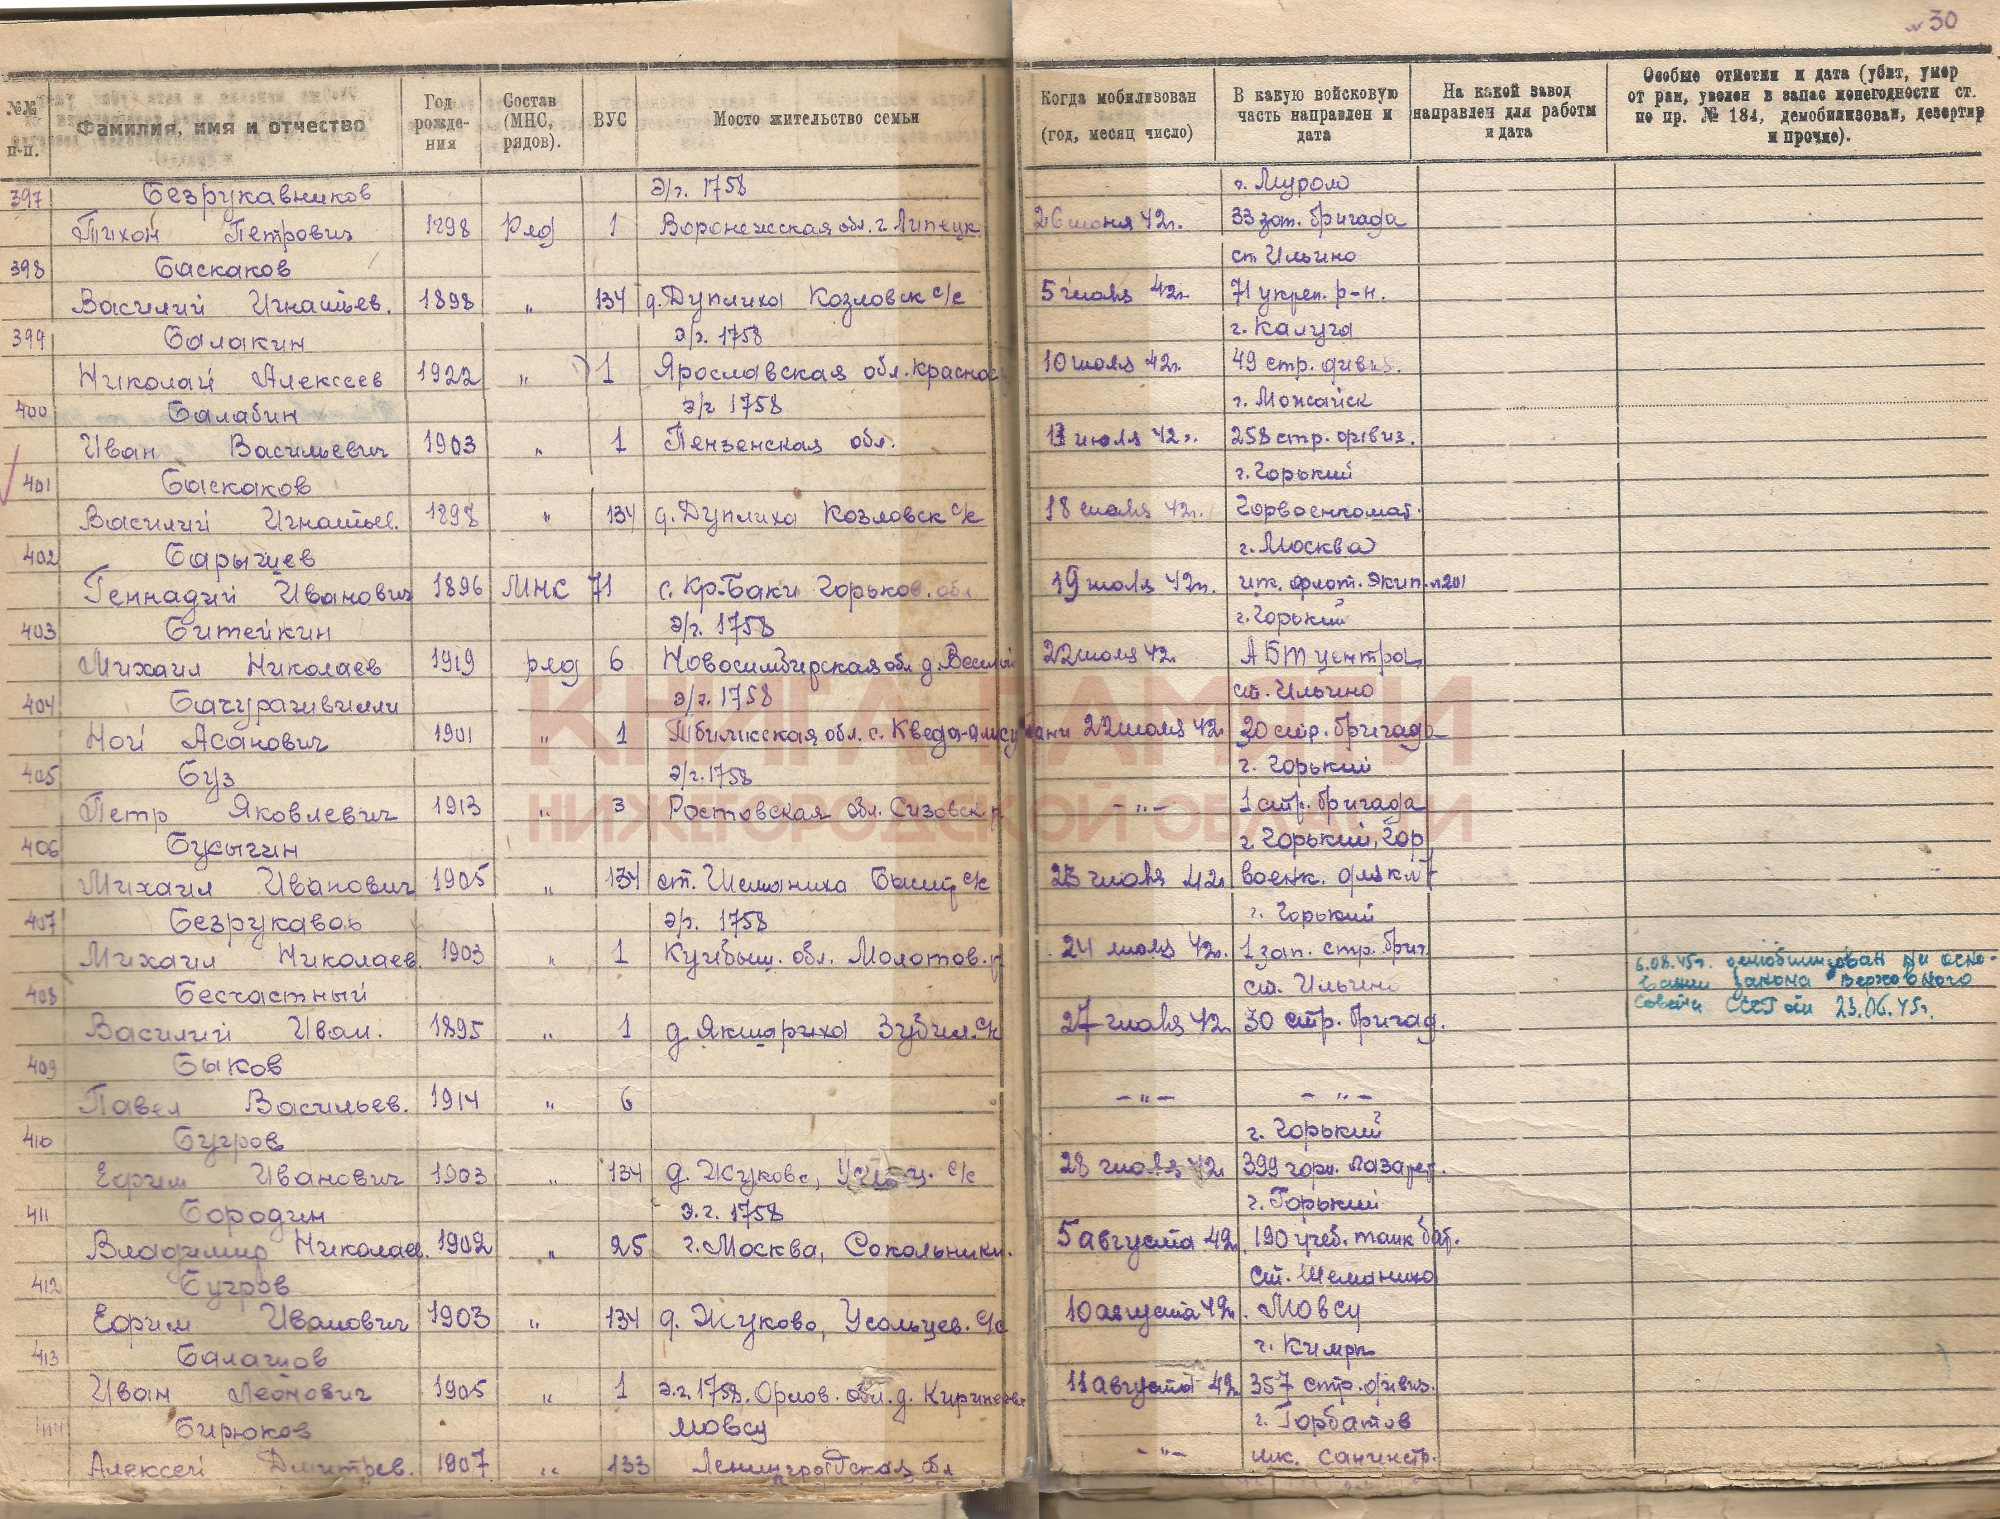 30
№№ п-п. Фамилия, имя и отчество Год рождения Состав (МНС, рядов). ВУС Место жительство семьи Когда мобилизован (год, месяц число) В какую войсковую часть направлен и дата На какой завод направлен для работы и дата Особые отметки и дата (убит, умер от ран, уволен в запас по негодности ст. по пр. № 184, демобилизован, дезертир и прочие).
397 Безрукавников э/г. 1758 г. Муром
Тихон Петрович 1898 Ряд 1 Воронежская обл. г. Липецк. 26 июня 42г. 33 зап. бригада
398 Баскаков ст Ильино
Василий Игнатьев. 1898 " 134 д. Дуплиха Козловск с/с 5 июля 42г. 71 укреп. р-н.
399 Балакин э/г. 1758 г. Калуга
Николай Алексеев 1922 " 1 Ярославская обл. 10 июля 42г. 49 стр. дивиз.
400 Балабин э/г 1758 г. Можайск
Иван Васильевич 1903 " 1 Пензенская обл. 13 июля 42г. 258 стр. дивиз.
401 Баскаков г. Горький
Василий Игнатьев. 1898 " 134 д. Дуплиха Козловск с/с 18 июля 42г. Горвоенкомат.
402 Барышев г. Москва
Геннадий Иванович 1896 МНС 71 с. Кр-Баки Горьков. обл 19 июля 42г. экип.
403 Битейкин э/г. 1758 г. Горький
Михаил Николаев 1919 ряд 6 Новосимбирская обл д. 22 июля 42. АБТ центра
404 Бачурашвилли э/г. 1758 ст. Ильино
Ной Асанович 1901 " 1 Тбилисская обл. с. 22 июля 42. 30 стр. бригада
405 Буз э/г. 1758 г. Горький
Петр Яковлевич 1913 " 3 Ростовская обл. Сизовск р -"- 1 стр. бригада
406 Бусыгин г Горький, Гор
Михаил Иванович 1905 " 134 ст. Шеманиха с/с 23 июля 42г военк.
407 Безрукавов э/г. 1758 г. Горький
Михаил Николаев. 1903 " 1 Куйбыш. обл. Молотов. р 24 июля 42г. 1 зап. стр. бриг 6.08.45г. демобилизован на осно-
408 Бесчастный ст. Ильино вании закона Верховного
Василий Иван. 1895 " 1 д. Якшариха Зубил. с/с 27 июля 42г. 30 стр. бригад. Совета СССР от 23.06.45г.
409 Быков
Павел Васильев. 1914 " 6 -"- -"-
410 Бугров г. Горький
Ефим Иванович 1903 " 134 д. Жуково, с/с 28 июля 42г 399 лазарет.
411 Бородин э.г. 1758 г. Горький
Владимир Николаев. 1902 " 25 г. Москва, Сокольники. 5 августа 42г. 190 учеб. танк бат.
412 Бугров ст. Шеманиха
Ефим Иванович 1903 " 134 д. Жуково, Усольцев. с/с 10 августа 42г. Мовсу
413 Балашов г. Кимры
Иван Леонович 1905 " 1 э.г. 1758. Орлов. обл. д. 11 августа 42г. 357 стр. дивиз.
414 Бирюков Мовсу г. Горбатов
Алексей Дмитрев. 1907 " 133 Ленинградская обл -"- санинстр.
КНИГА ПАМЯТИ
НИЖЕГОРОДСКОЙ ОБЛАСТИ